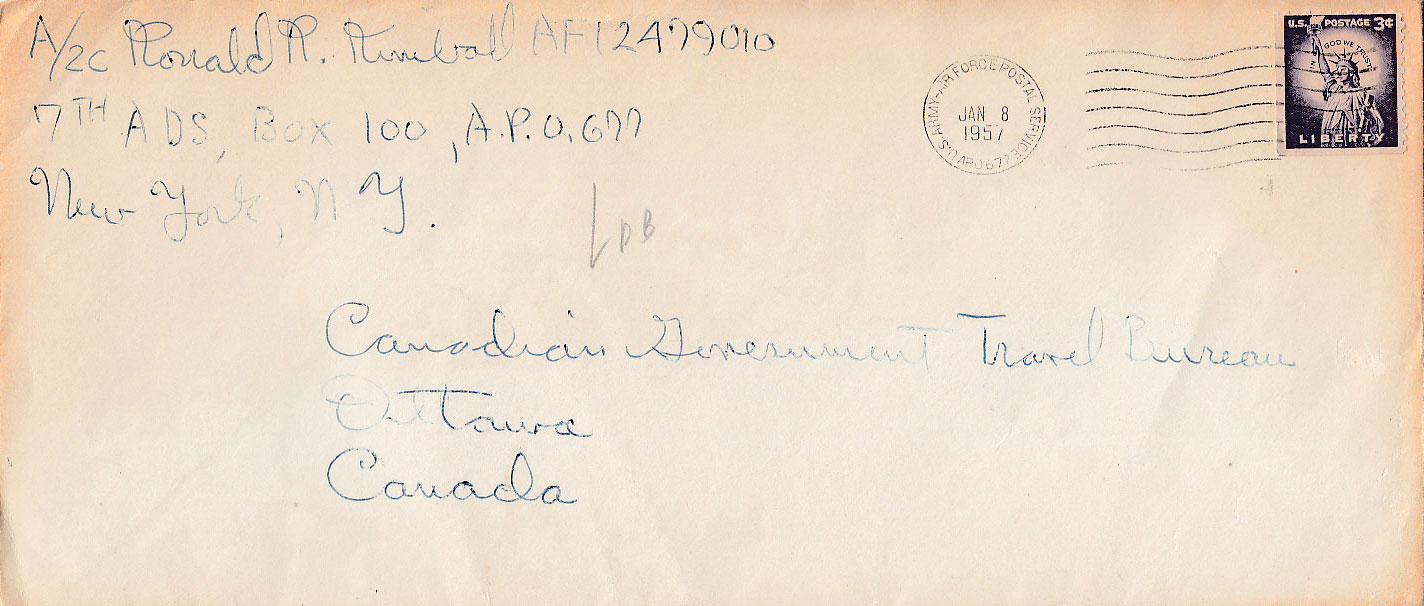 A/2C Ronald R. Kimball AF12479010
7TH ADS, Box 100, A.P.O. 677
New York, N Y.
U.S. ARMY-AIR FORCE POSTAL SERVICE
APO 677
JAN 8
1957
U.S. POSTAGE 3¢
IN GOD WE TRUST
LIBERTY
DB
Canadian Government Travel Bureau
Ottawa
Canada